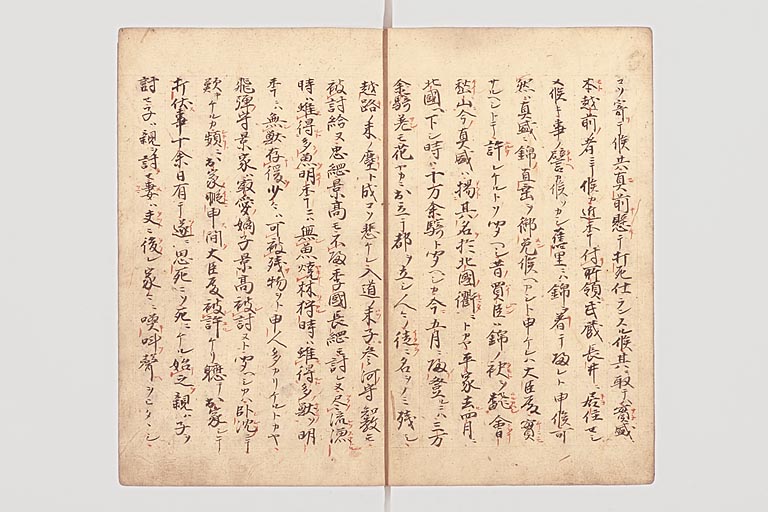 コソ寄テ候共真前懸テ打死仕ランスル候其ニ取テ実盛
本越前ノ者ニテ候カ近年付所領武蔵長井ニ居住セシ
メ候キ事ノ譬カ候ソカシ旧里ニハ錦ヲ着テ帰レト申候可
然ハ真盛ニ錦直垂ヲ御免候ヘカシト申ケレハ大臣殿実
サルヘシトテ許シケルトソ聞ヘシ昔買臣ハ錦ノ袂ヲ懿会
稽山今真盛ハ揚其名於北国衢ニトカヤ平家去四月ニ
北国ヘ下シ時ハ十万余騎ト聞ヘシカ今五月ニ帰登ルニハ三万
余騎花ヤカニ出立テ都ヲ立シ人々ノ徒ニ名ヲノミ残シ
越路ノ末ノ塵ト成コソ悲ケレ入道ノ末子参河守知教モ
被討給又忠綱景高モ不帰季国長綱モ討レヌ尽流漁
時ハ雖得多魚明年ニハ無魚焼林狩時ハ雖得多獣ヲ明
年ニハ無獣存後少々ハ可被残物ヲト申人多カリケルトカヤ
飛弾守景家最愛嫡子景高被討ヌト聞ヘシカハ臥沈テ
歎ケルカ頻ニ出家暇申間大臣殿被許ケリ聴テ出家シテ
打伏事十余日有テ遂ニ思死ニソ死ニケル始之親ハ子ヲ
討セ子ハ親ヲ討セ妻ハ夫ニ後レ家々ニ喚叫声ヲヒタヽシ